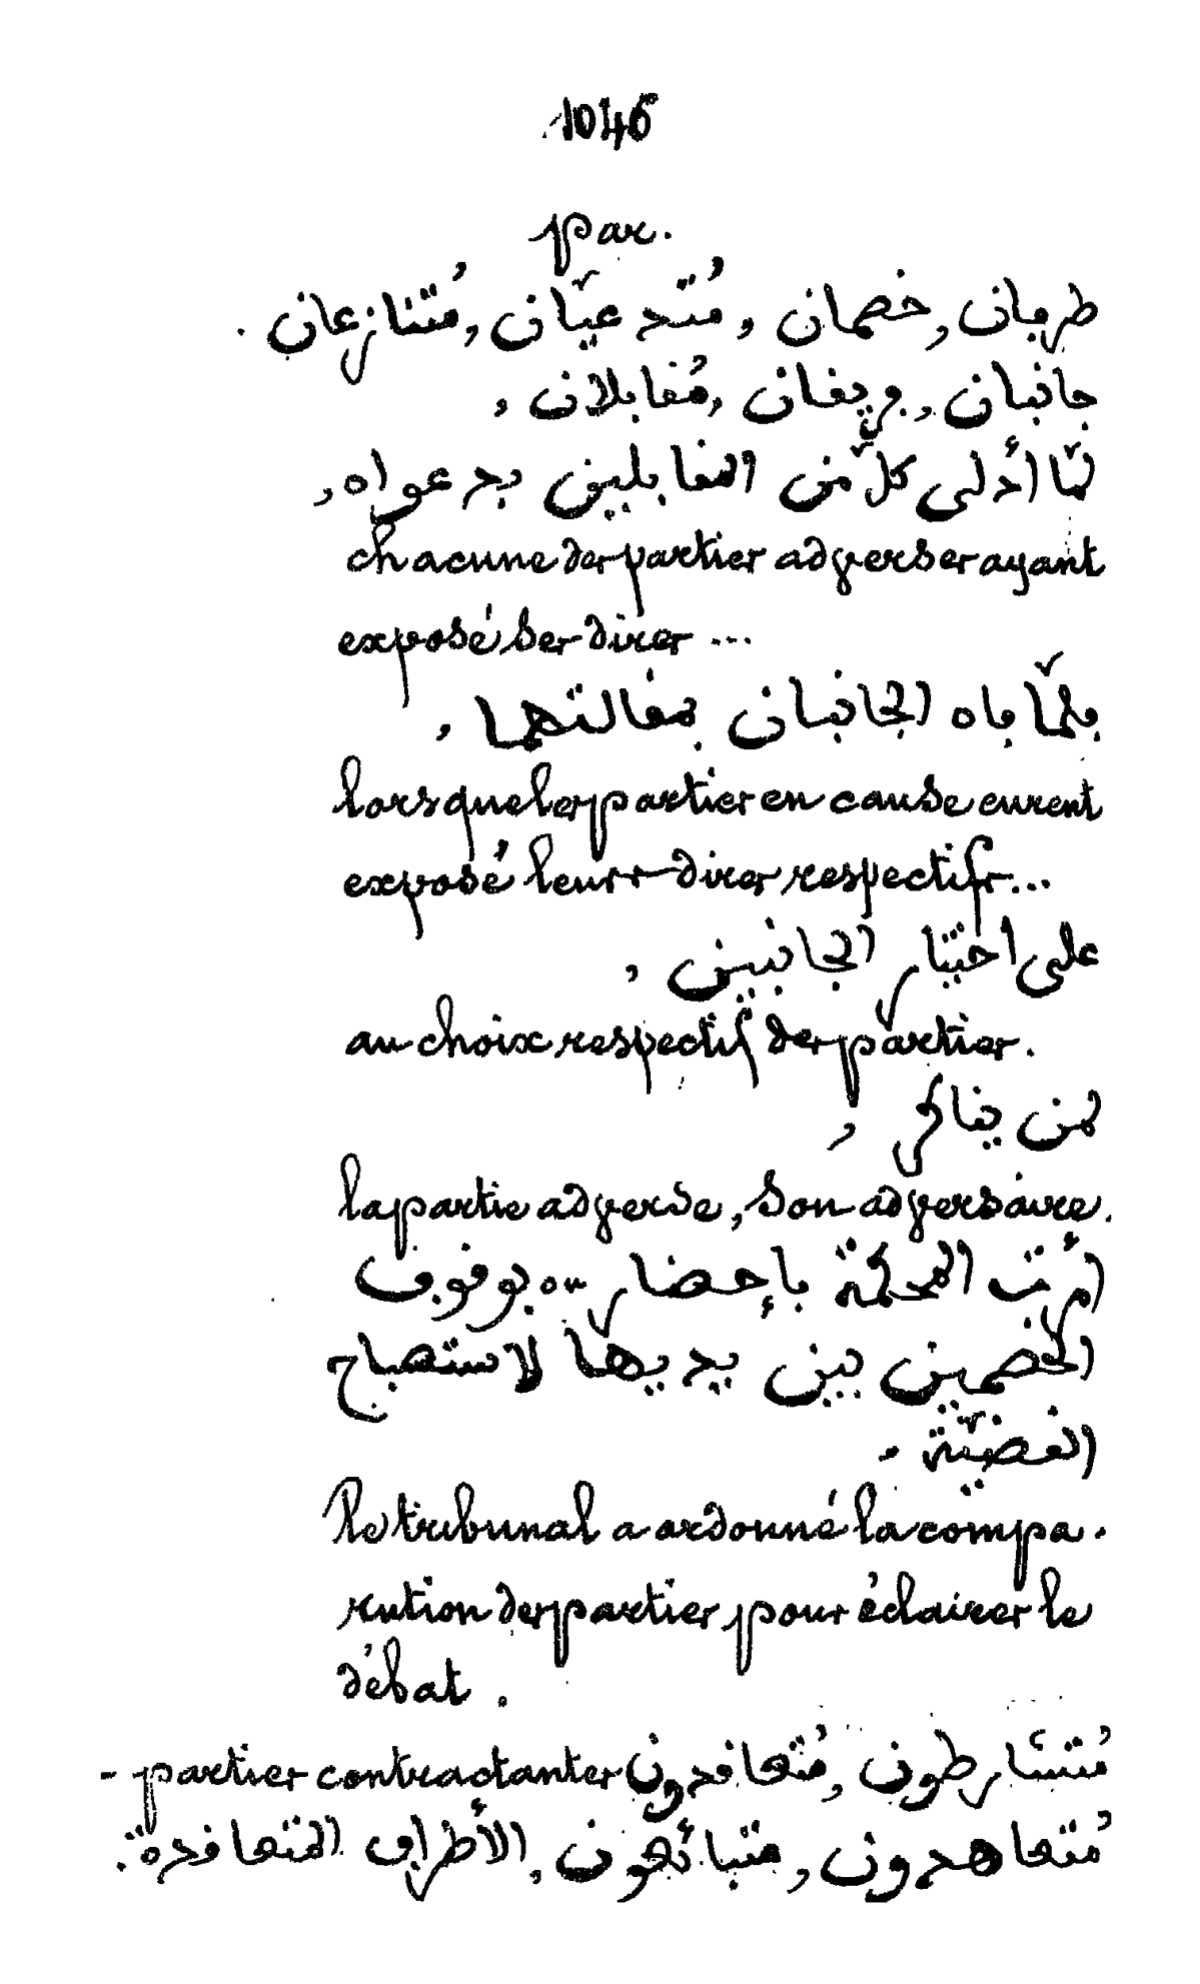 1046
par.
طرفان, خصمان, مُتّدعيّان, مُتنازعان.
جانبان, فريقان, مُقابلان,
لمّا أدلى كلّ من المقابلين بدعواه,
chacune des parties adverses ayant
exposé ses dires ...
فلمّا فاه الجانبان بمقالتهما,
lorsque les parties en cause eurent
exposé leurs dires respectifs...
على اختيار الجانبين,
au choix respectif des parties.
لمن
la partie adverse, son adversaire.
أمرت المحكمة بإحضار ou بوقوف
الخصمين بين يديها لاستصباح
القضيّة -
le tribunal a ordonné la compa-
rution des parties pour éclairer le
débat.
- parties contractantes مُتشارطون, مُتعاقدون
مُتعاهدون, متبائعون, الأطراف المتعاقدة.